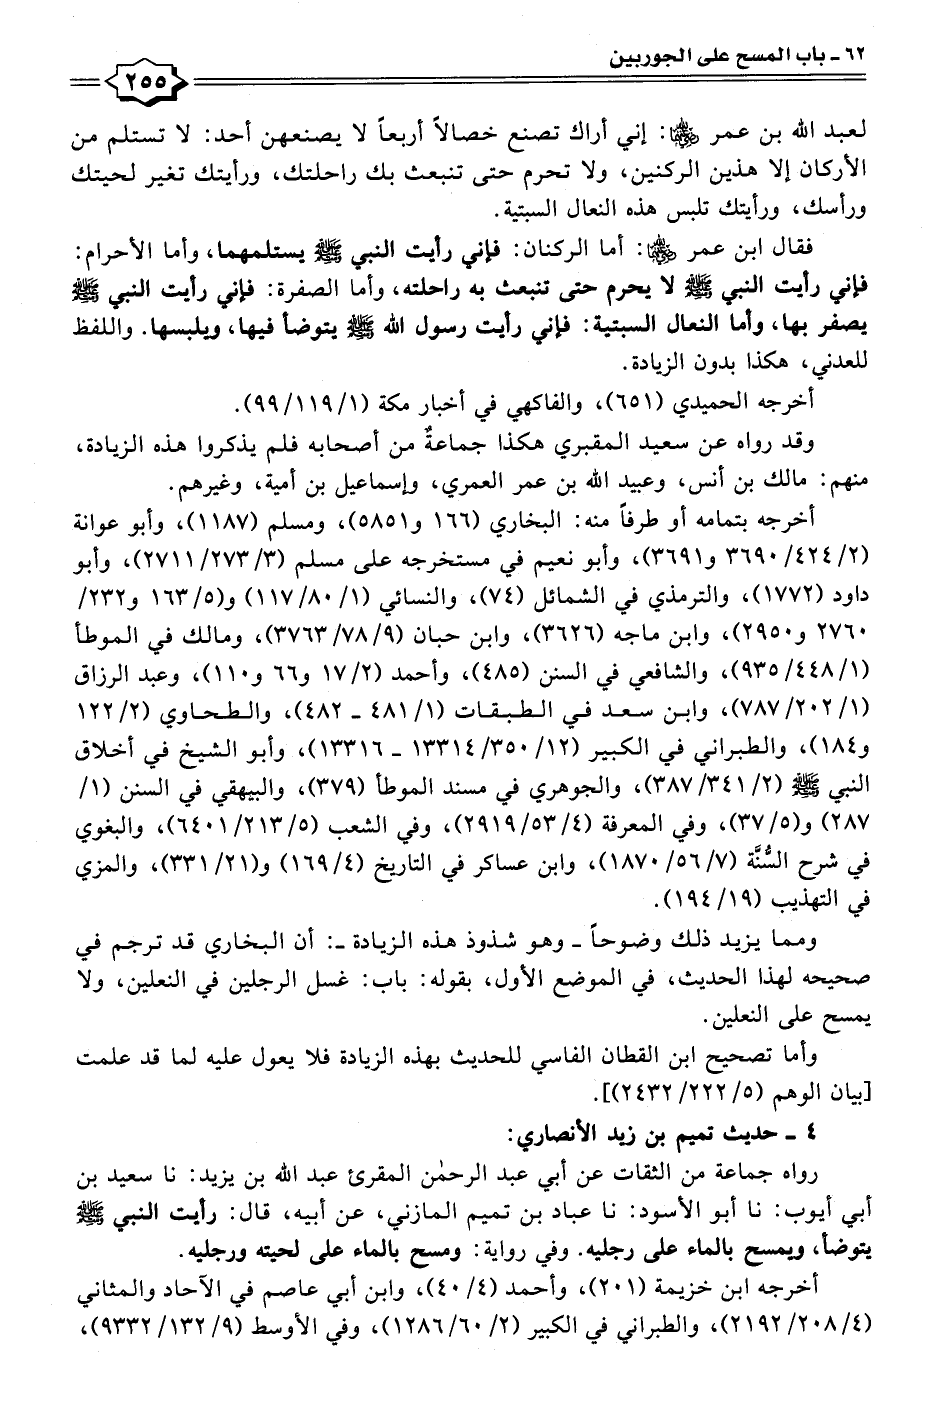 ٦٢ - باب المسح على الجوربين
٢٥٥
لعبد الله بن عمر رضي الله عنهما: إني أراك تصنع خصالاً أربعاً لا يصنعهن أحد: لا تستلم من
الأركان إلا هذين الركنين، ولا تحرم حتى تنبعث بك راحلتك، ورأيتك تغير لحيتك
ورأسك، ورأيتك تلبس هذه النعال السبتية.
فقال ابن عمر رضي الله عنهما: أما الركنان: فإني رأيت النبي ﷺ يستلمهما، وأما الأحرام:
فإني رأيت النبي ﷺ لا يحرم حتى تنبعث به راحلته، وأما الصفرة: فإني رأيت النبي ﷺ
يصفر بها، وأما النعال السبتية: فإني رأيت رسول الله ﷺ يتوضأ فيها، ويلبسها. واللفظ
للعدني، هكذا بدون الزيادة.
أخرجه الحميدي (٦٥١)، والفاكهي في أخبار مكة (١/ ١١٩/ ٩٩).
وقد رواه عن سعيد المقبري هكذا جماعةٌ من أصحابه فلم يذكروا هذه الزيادة،
منهم: مالك بن أنس، وعبيد الله بن عمر العمري، وإسماعيل بن أمية، وغيرهم.
أخرجه بتمامه أو طرفاً منه: البخاري (١٦٦ و٥٨٥١)، ومسلم (١١٨٧)، وأبو عوانة
(٢/ ٤٢٤/ ٣٦٩٠ و٣٦٩١)، وأبو نعيم في مستخرجه على مسلم (٣/ ٢٧٣/ ٢٧١١)، وأبو
داود (١٧٧٢)، والترمذي في الشمائل (٧٤)، والنسائي (١/ ٨٠/ ١١٧) و(٥/ ١٦٣ و٢٣٢/
٢٧٦٠ و٢٩٥٠)، وابن ماجه (٣٦٢٦)، وابن حبان (٩/ ٧٨/ ٣٧٦٣)، ومالك في الموطأ
(١/ ٤٤٨/ ٩٣٥)، والشافعي في السنن (٤٨٥)، وأحمد (٢/ ١٧ و٦٦ و١١٠)، وعبد الرزاق
(١/ ٢٠٢/ ٧٨٧)، وابن سعد في الطبقات (١/ ٤٨١ - ٤٨٢)، والطحاوي (٢/ ١٢٢
و١٨٤)، والطبراني في الكبير (١٢/ ٣٥٠/ ١٣٣١٤ - ١٣٣١٦)، وأبو الشيخ في أخلاق
النبي ﷺ (٢/ ٣٤١/ ٣٨٧)، والجوهري في مسند الموطأ (٣٧٩)، والبيهقي في السنن (١/
٢٨٧) و(٥/ ٣٧)، وفي المعرفة (٤/ ٥٣/ ٢٩١٩)، وفي الشعب (٥/ ٢١٣/ ٦٤٠١)، والبغوي
في شرح السُّنَّة (٧/ ٥٦/ ١٨٧٠)، وابن عساكر في التاريخ (٤/ ١٦٩) و(٢١/ ٣٣١)، والمزي
في التهذيب (١٩/ ١٩٤).
ومما يزيد ذلك وضوحاً - وهو شذوذ هذه الزيادة -: أن البخاري قد ترجم في
صحيحه لهذا الحديث، في الموضع الأول، بقوله: باب: غسل الرجلين في النعلين، ولا
يمسح على النعلين.
وأما تصحيح ابن القطان الفاسي للحديث بهذه الزيادة فلا يعول عليه لما قد علمت
[بيان الوهم (٥/ ٢٢٢/ ٢٤٣٢)].
٤ - حديث تميم بن زيد الأنصاري:
رواه جماعة من الثقات عن أبي عبد الرحمٰن المقرئ عبد الله بن يزيد: نا سعيد بن
أبي أيوب: نا أبو الأسود: نا عباد بن تميم المازني، عن أبيه، قال: رأيت النبي ﷺ
يتوضأ، ويمسح بالماء على رجليه. وفي رواية: ومسح بالماء على لحيته ورجليه.
أخرجه ابن خزيمة (٢٠١)، وأحمد (٤/ ٤٠)، وابن أبي عاصم في الآحاد والمثاني
(٤/ ٢٠٨/ ٢١٩٢)، والطبراني في الكبير (٢/ ٦٠/ ١٢٨٦)، وفي الأوسط (٩/ ١٣٢/ ٩٣٣٢)،